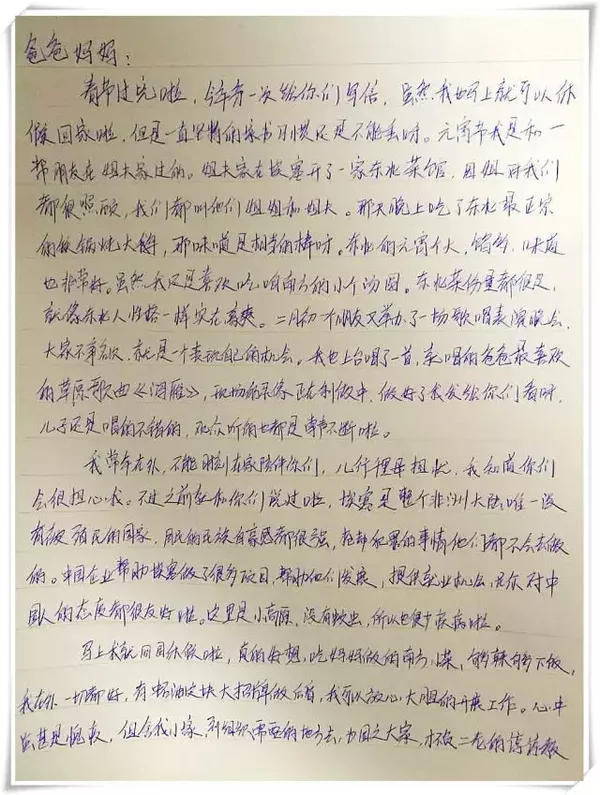 爸爸妈妈:
春节过完啦,今年第一次给你们写信,虽然我马上就可以休
假回家啦,但是一直坚持的家书习惯还是不能丢呀。元宵节我是和一
帮朋友在姐夫家过的。姐夫家在埃塞开了一家东北菜馆,因姐对我们
都很照顾,我们都叫他们姐姐和姐夫。那天晚上吃了东北最正宗
的铁锅炖大鹅,那味道是相当的棒呀。东北的元宵个大,馅多,味道
也非常好。虽然我还是喜欢吃咱南方的小个汤圆。东北菜份量都很足,
就像东北人性格一样实在豪爽。二月初一个朋友又举办了一场歌唱表演晚会,
大家不争名次,就是一个表现自己的机会。我也上台唱了一首,唱的爸爸最喜欢
的草原歌曲《鸿雁》,现场录像正在制作中,做好了我发给你们看呀,
儿子还是唱的不错的,观众听的也都是掌声不断啦。
我常年在外,不能时刻在家陪伴你们,儿行千里母担忧,我知道你们
会很担心我。不过之前就和你们说过啦,埃塞是整个非洲大陆唯一没
有被殖民的国家,居民的民族自豪感都很强,抢劫犯罪的事情他们都不会去做
的。中国企业帮助埃塞做了很多项目,帮助他们发展,提供就业机会,民众对中
国人的态度都很友好啦。这里是小高原,没有蚊虫,所以也很少疾病啦。
马上我就回国休假啦,真的好想吃妈妈做的南方小菜,
我在外一切都好,有中油这块大招牌做后盾,我可以放心大胆的开展工作。心中
虽甚是愧疚,但舍我小家,到组织需要的地方去,为国之大家,才不负二老的谆谆教